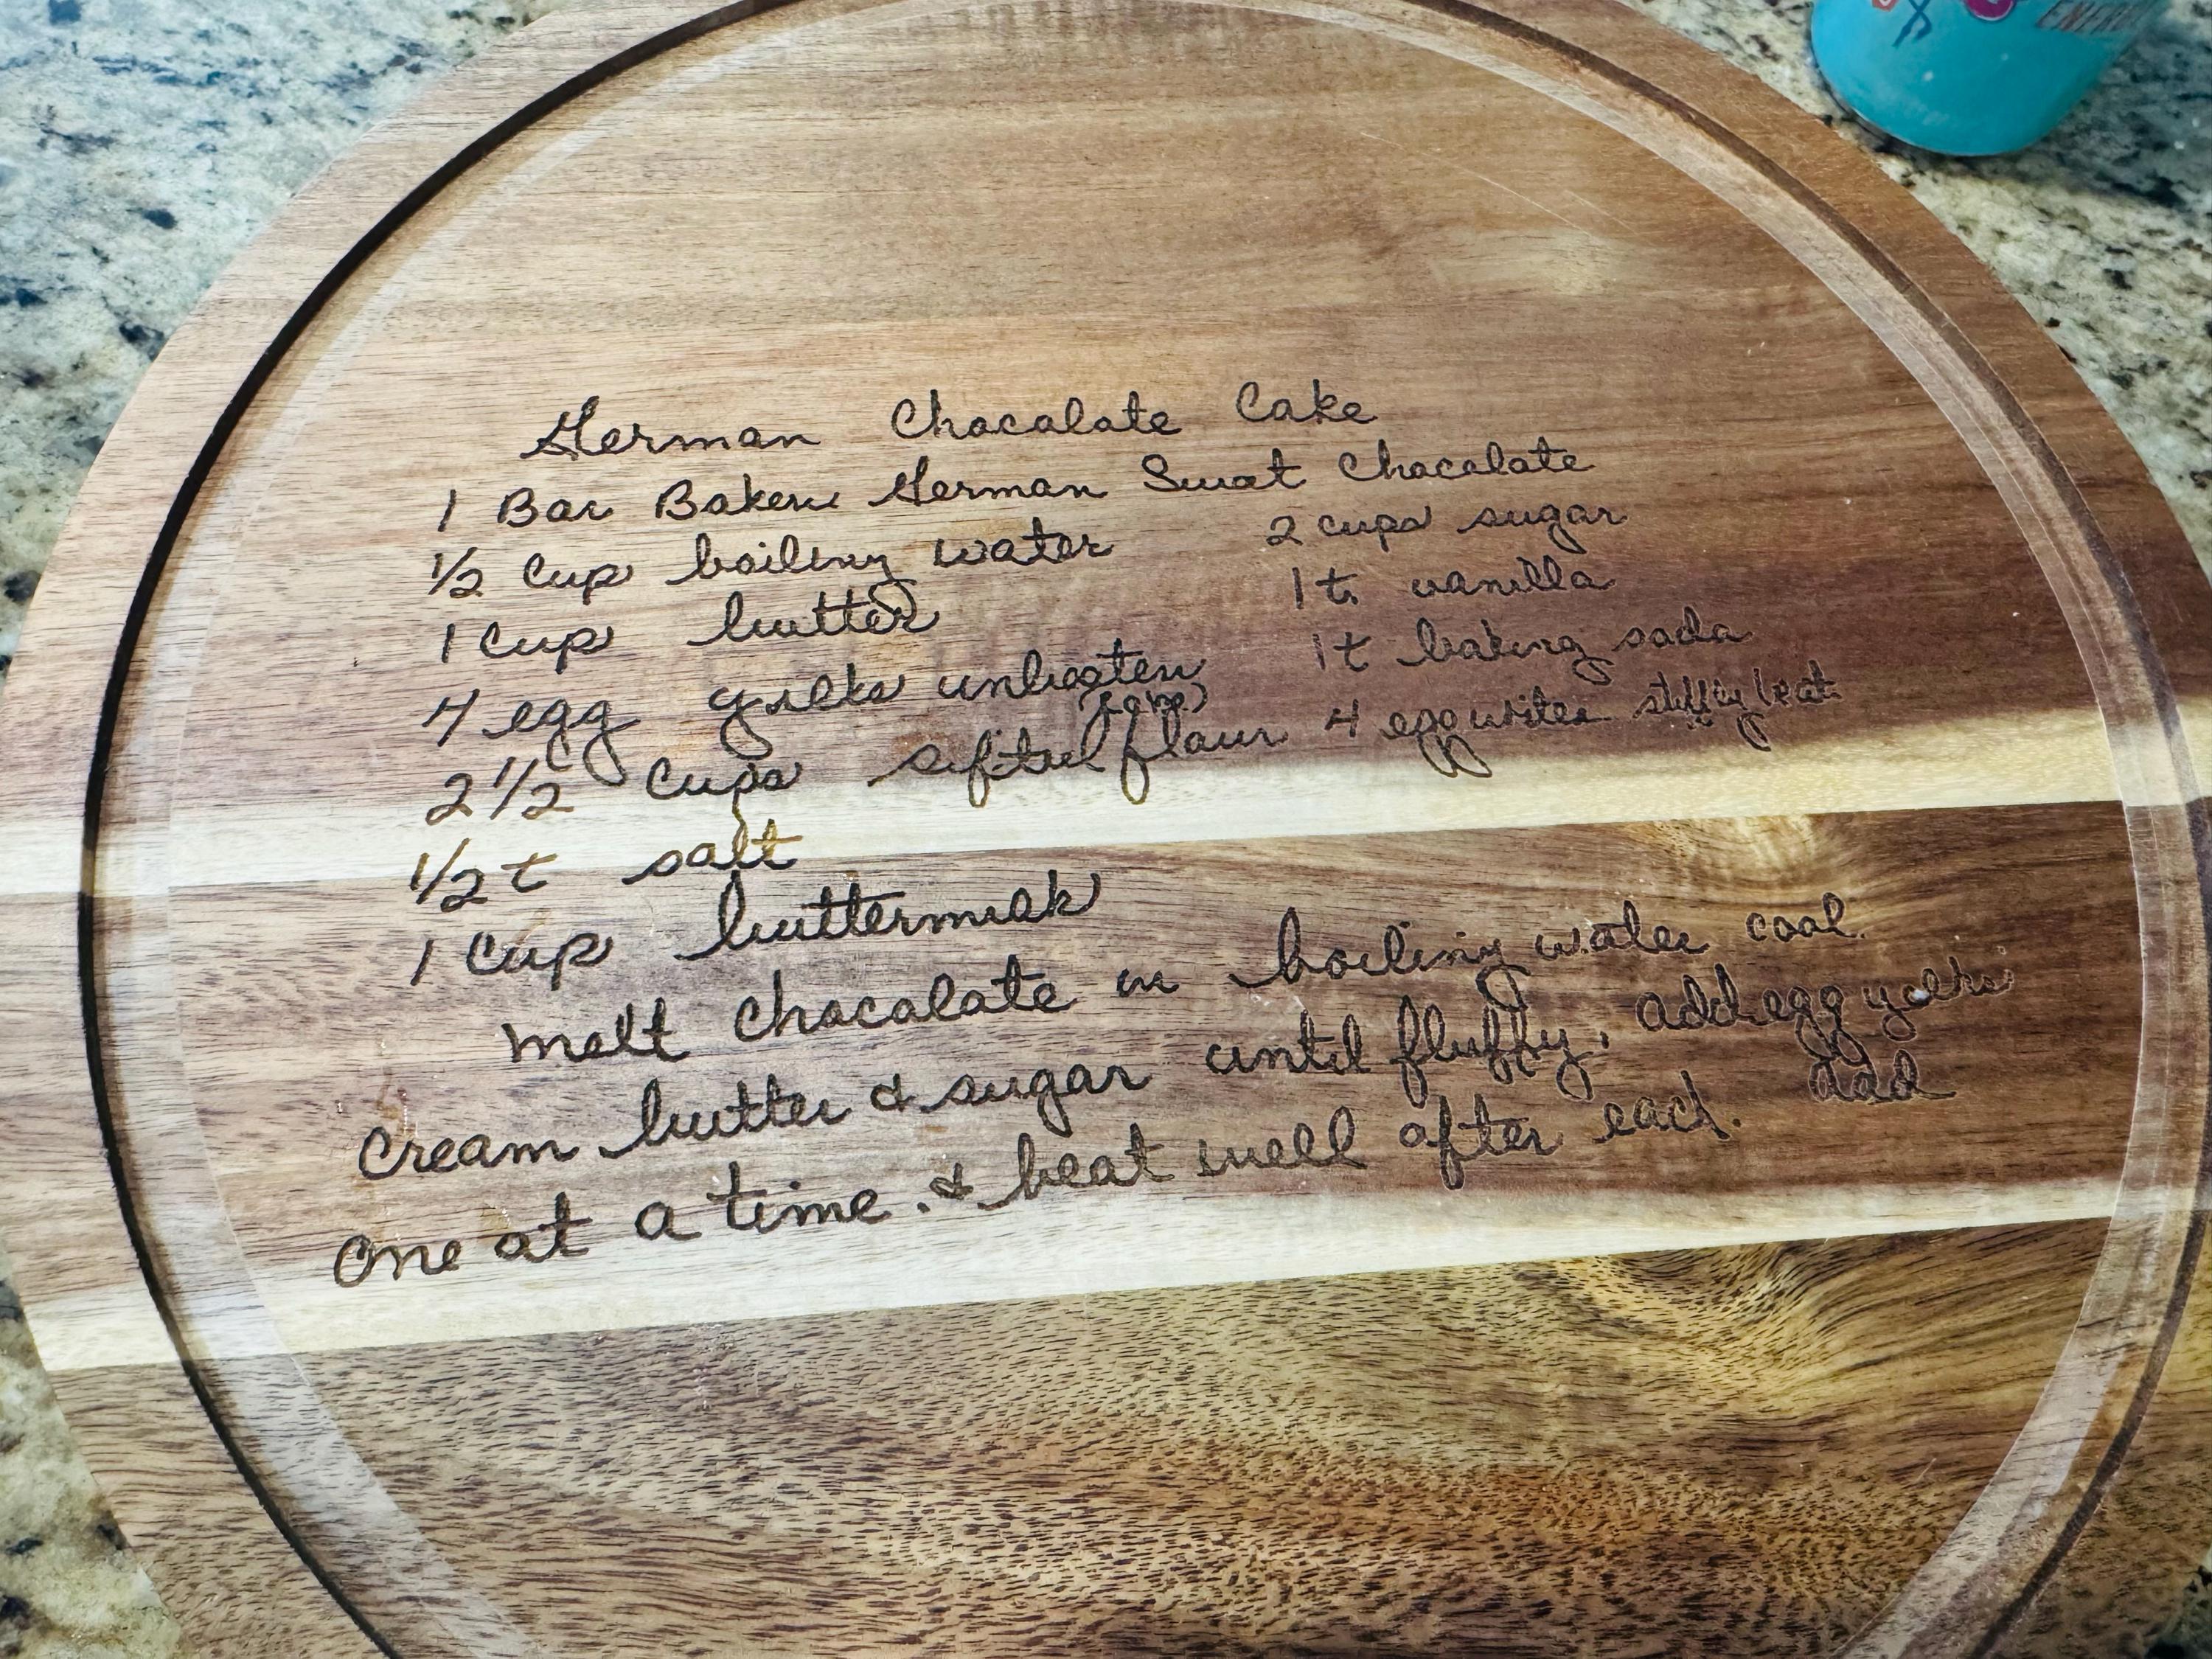 German Chocolate Cake
1 Bar Bakers German Sweet Chocolate
1/2 Cup boiling water 2 cups sugar
1 Cup butter 1 t. vanilla
4 egg yolks unbeaten 1 t baking soda
(cake)
2 1/2 Cups sifted flour 4 egg whites stiffly beat
1/2 t salt
1 Cup buttermilk
Melt Chocolate in boiling water cool.
Cream butter & sugar until fluffy, add egg yolks
One at a time. & beat well after each. Add
ENERGY